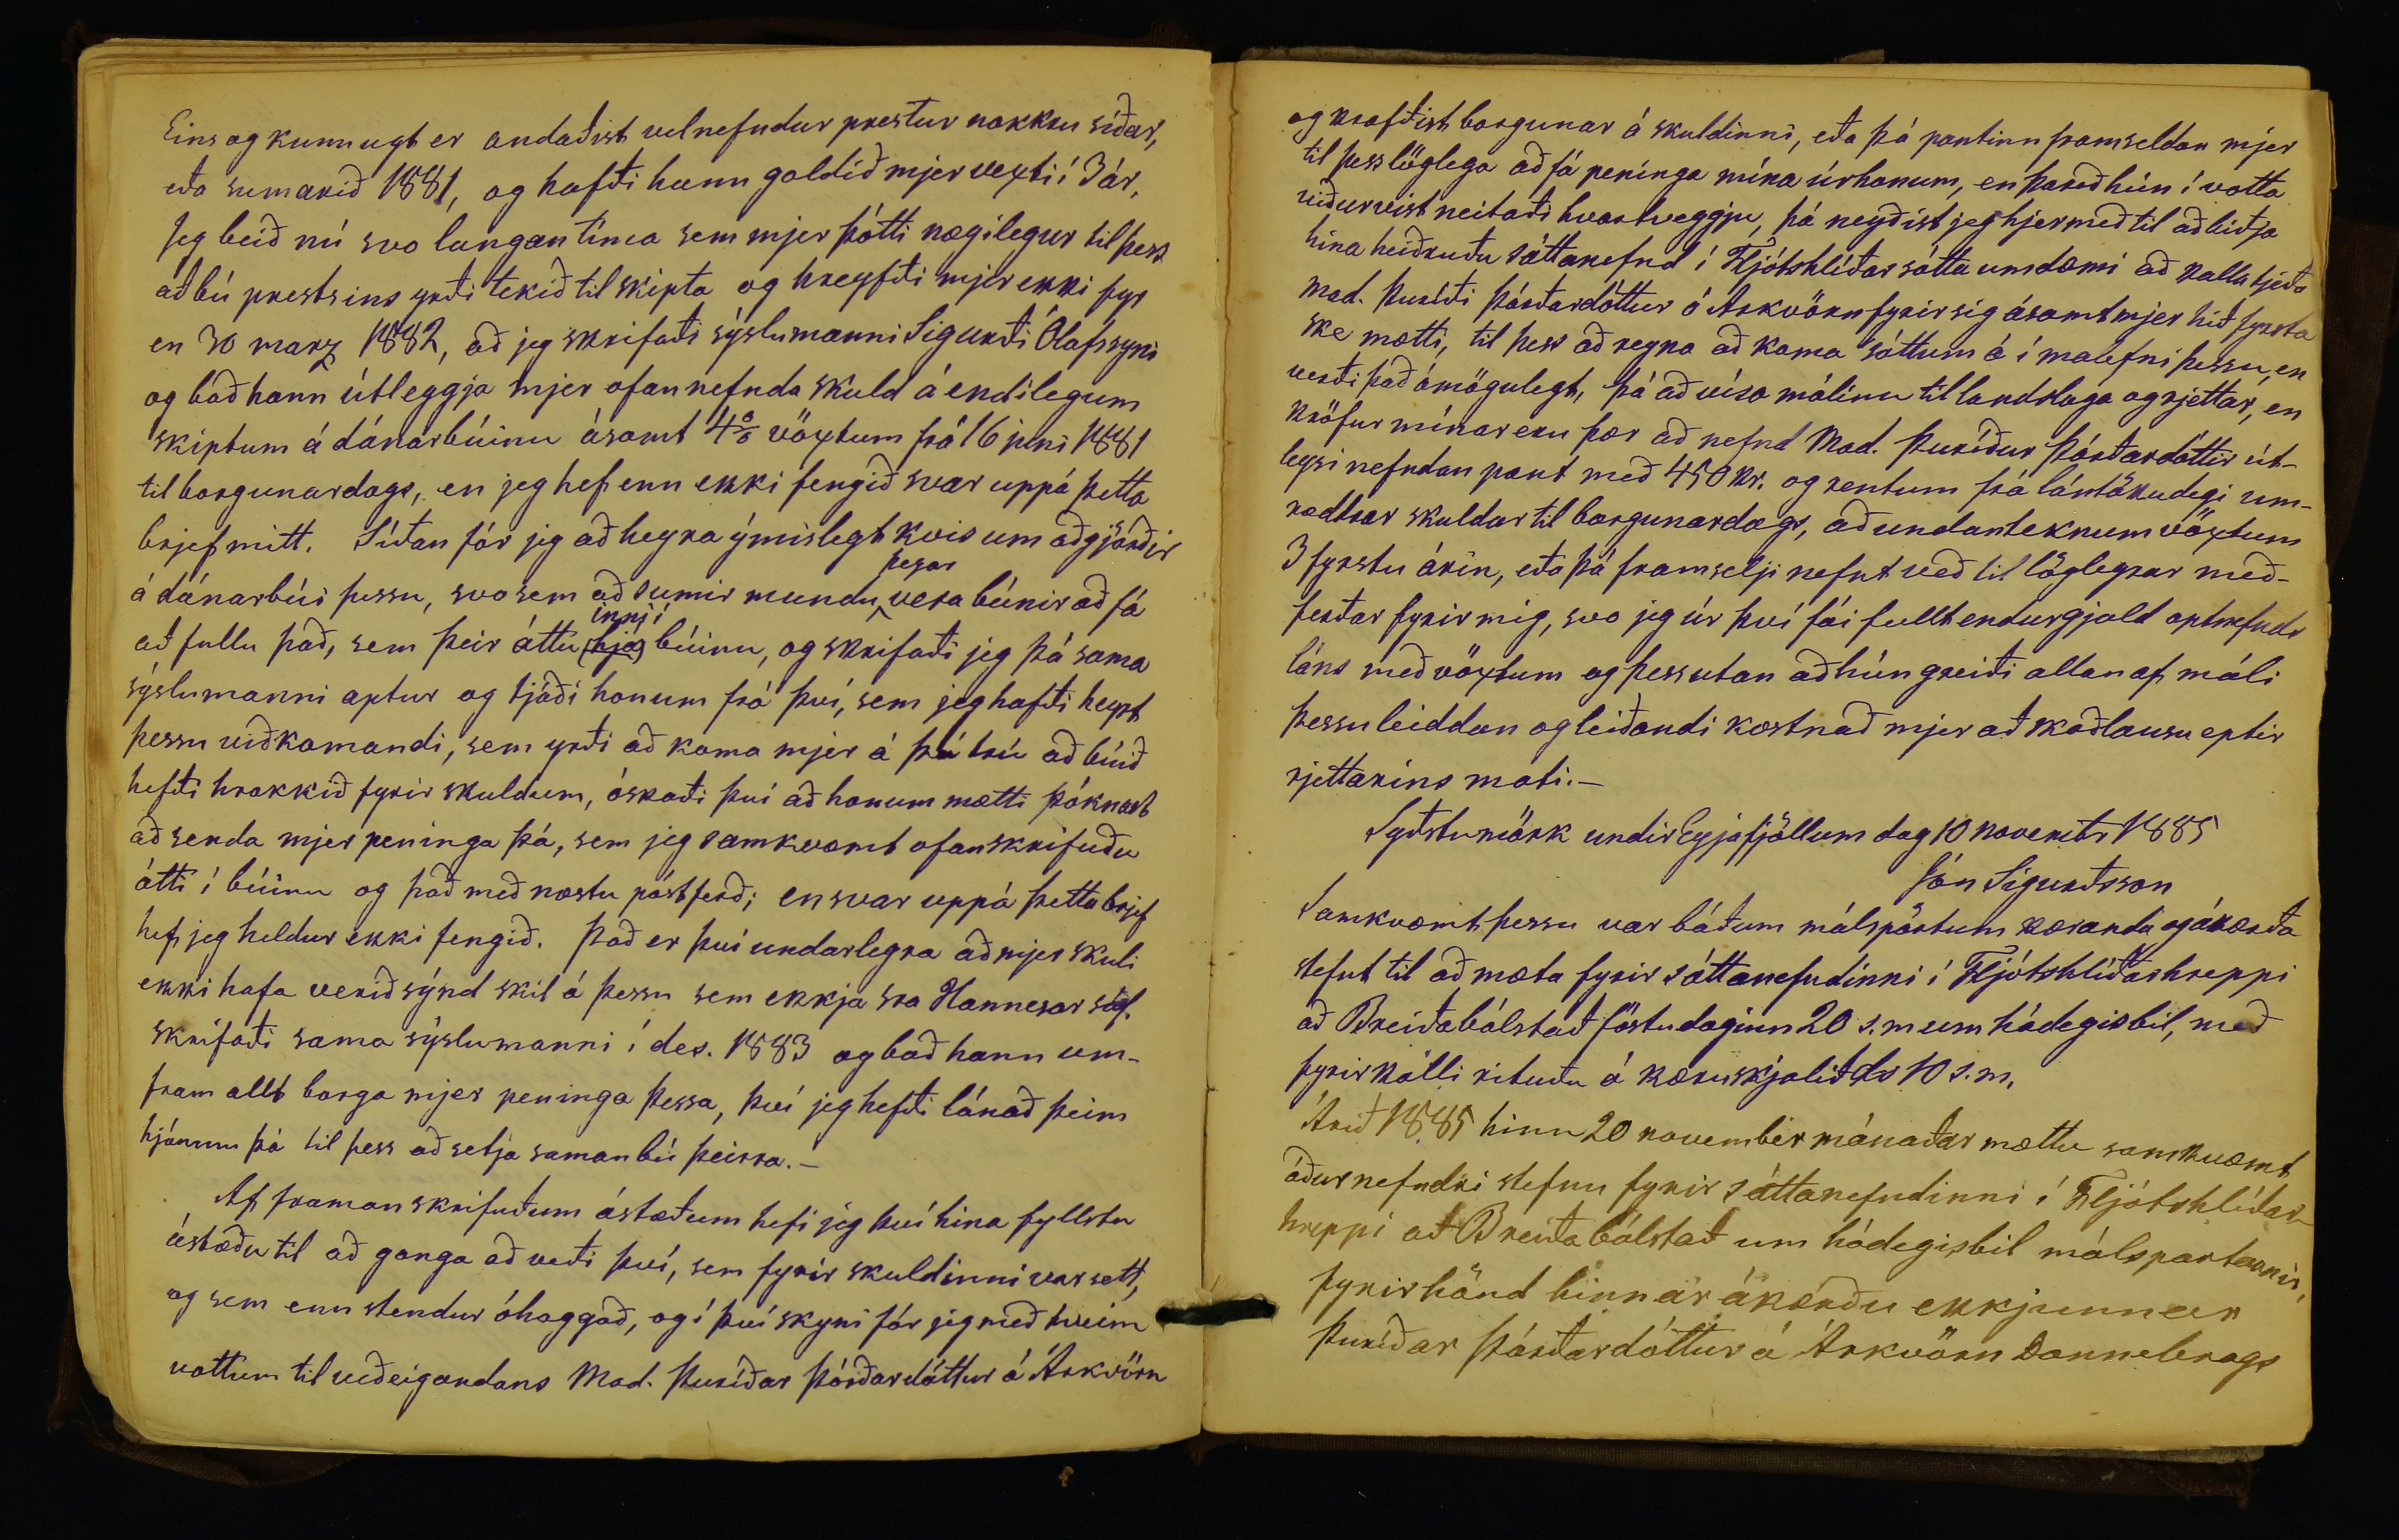 Eins og kunnugt er andaðist velnefndur prestur nokkru síðar,
eða sumarið 1881, og hafði hann goldið mjer vexti í 3 ár,
Jeg beið nú svo langan tíma sem mjer þótti nægilegur til þess
að bú prestsins yrði tekið til skipta og hreyfði mjer ekki fyr
en 30 marz 1882, að jeg skrifaði sýslumanni Sigurði Ólafssyni
og bað hann útleggja mjer ofannefnda skuld á endilegum
skiptum á dánarbúinu ásamt 4% vöxtum frá 16 juni 1881
til borgunardags, en jeg hef enn ekki fengið svar uppá þetta
brjef mitt. Síðan fór jeg að heyra ýmislegt kvis um aðgjörðir
á dánarbúi þessu, svo sem að sumir mundu þegar vera búnir að fá
að fullu það, sem þeir áttu (hjá) inni í búinu, og skrifaði jeg þá sama
sýslumanni aptur og tjáði honum frá því, sem jeg hafði heyrt
þessu viðkomandi, sem yrði að koma mjer á þá trú að búið
hefði hrokkið fyrir skuldum, óskaði því að honum mætti þóknast
að senda mjer peninga þá, sem jeg samkvæmt ofanskrifuðu
átti í búinu og það með næstu póstferð; en svar uppá þetta brjef
hef jeg heldur ekki fengið. Það er því undarlegra að mjer skuli
ekki hafa verið sýnd skil á þessu sem ekkja sra Hannesar sál.
skrifaði sama sýslumanni í des. 1883 og bað hann um-
fram allt borga mjer peninga þessa, því jeg hefði lánað þeim
hjónum þá til þess að setja saman bú þeirra.–
Af framanskrifuðum ástæðum hefi jeg því hina fyllstu
ástæðu til að ganga að veði því, sem fyrir skuldinni var sett,
og sem enn stendur óhaggað, og í því skyni fór jeg með tveim
vottum til veðeigandans Mad. Þuríðar Þórðardóttur á Árkvörn
og krafðist borgunar á skuldinni, eða þá pantinn framseldan mjer
til þess löglega að fá peninga mína úr honum, en þareð hún í votta
viðurvist neitaði hvortveggju, þá neyðist jeg hjermeð til að biðja
hina heiðruðu sáttanefnd í Fljótshlíðar sáttaumdæmi að kalla tjeða
Mad. Þuríði Þórðardóttur á Arkvörn fyrir sig ásamt mjer hið fyrsta
ske mætti, til þess að reyna að koma sáttum á í malefni þessu, en
verði það ómögulegt, þá að vísa málinu til landslaga og rjettar, en
kröfur mínar eru þær að nefnd Mad. Þuríður Þórðardóttir út-
leysi nefndan pant með 450 kr. og rentum frá lántökudegi um-
ræddrar skuldar til borgunardags, að undanteknum vöxtum
3 fyrstu árin, eða þá framselji nefnt veð til löglegrar með-
ferðar fyrir mig, svo jeg úr því fái fullt endurgjald optnefnds
láns með vöxtum og þessutan að hún greiði allan af máli
þessu leiddan og leiðandi kostnað mjer að skaðlausu eptir
rjettarins mati.–
Syðstumörk undir Eyjafjöllum dag 10 novembr 1885
Jón Sigurðsson
Samkvæmt þessu var báðum málspörtum kæranda og ákærða
stefnt til að mæta fyrir sáttanefndinni í Fljótshlíðarhreppi
að Breiðabólstað föstudaginn 20 s.m um hádegisbil, með
fyrirkalli rituðu á kæruskjalið ds 10 s.m.
Árið 1885 hinn 20 november mánaðar mættu samkvæmt
áðurnefndri stefnu fyrir sáttanefndinni í Fljótshlíðar-
hreppi að Breiðabólstað um hádegisbil málspartarnir,
fyrir hönd hinnar ákærðu ekkjunnar
Þuríðar Þórðardóttur á Árkvörn Dannebrogs